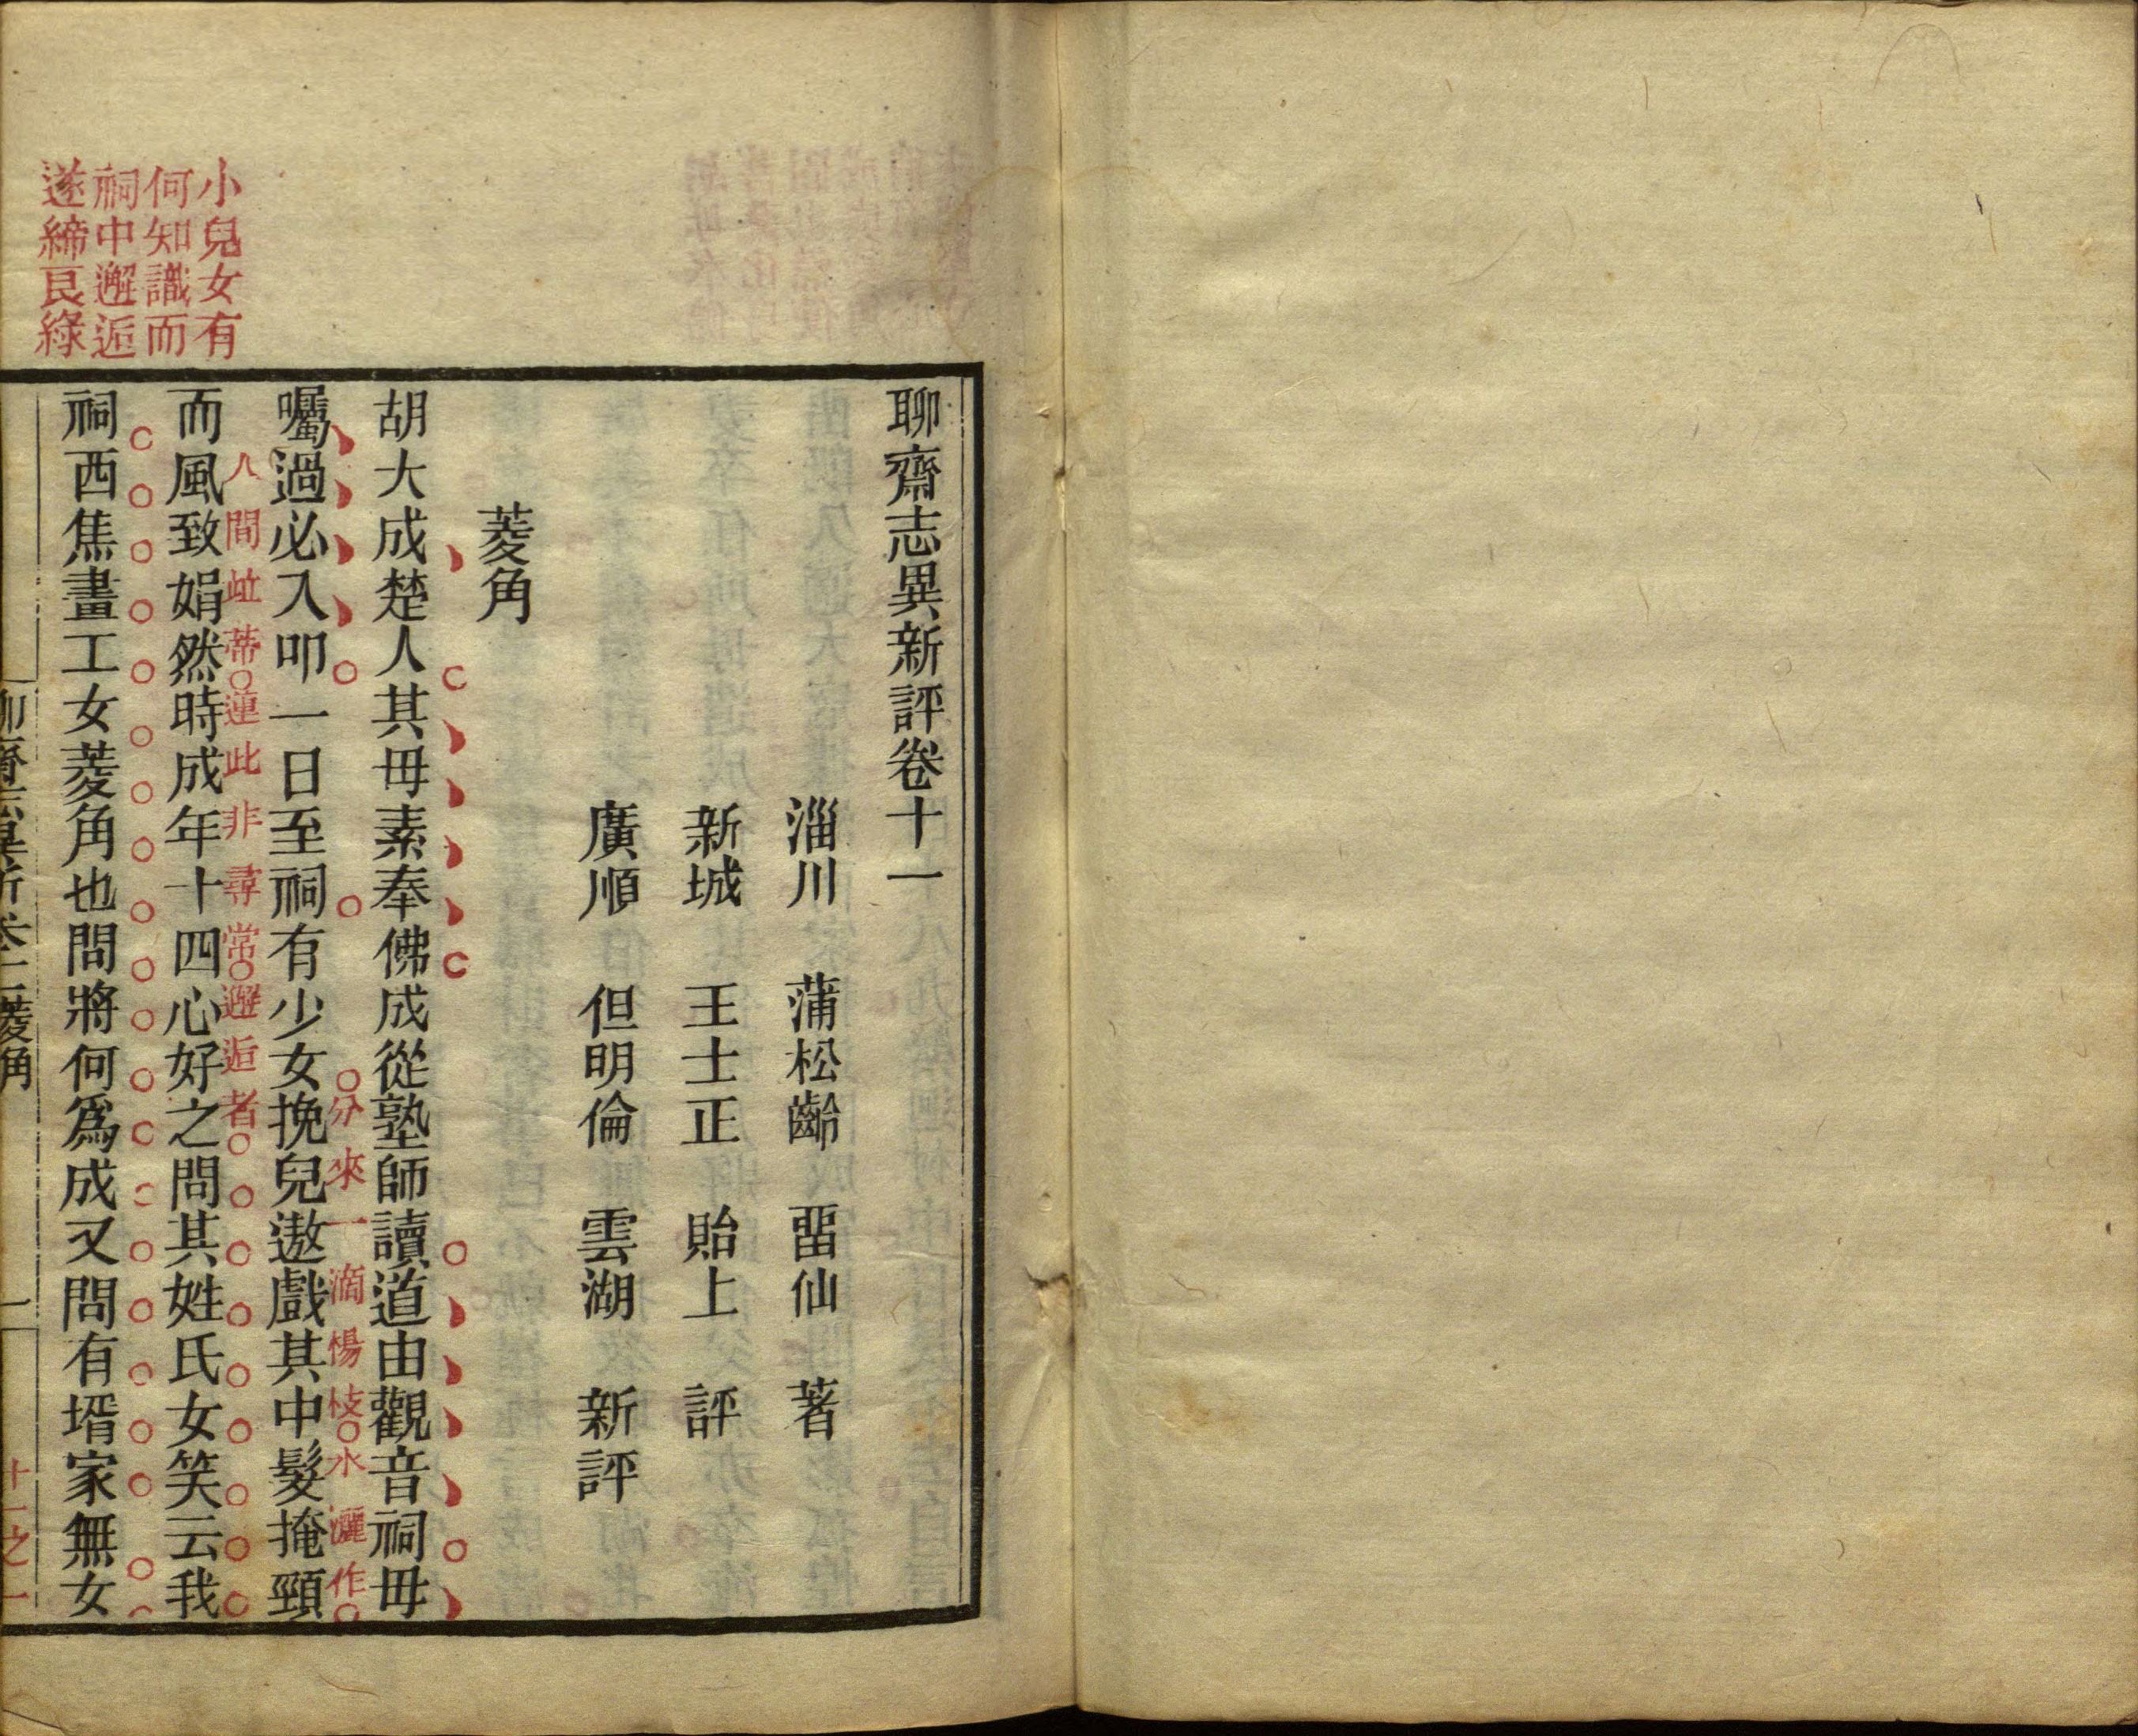 聊齋志異新評卷十一
淄川 蒲松齡 畱仙 著
新城 王士正 貽上 評
廣順 但明倫 雲湖 新評
菱角
胡大成楚人其母素奉佛成從塾師讀道由觀音祠母
囑過必入叩一日至祠有少女挽兒遨戲其中髮掩頸
分來一滴楊枝水灑作
人間並蒂蓮此非尋常邂逅者
而風致娟然時成年十四心好之問其姓氏女笑云我
祠西焦畫工女菱角也問將何爲成又問有壻家無女
小兒女有
何知識而
祠中邂逅
遂締良緣
菱角
一
十一之一